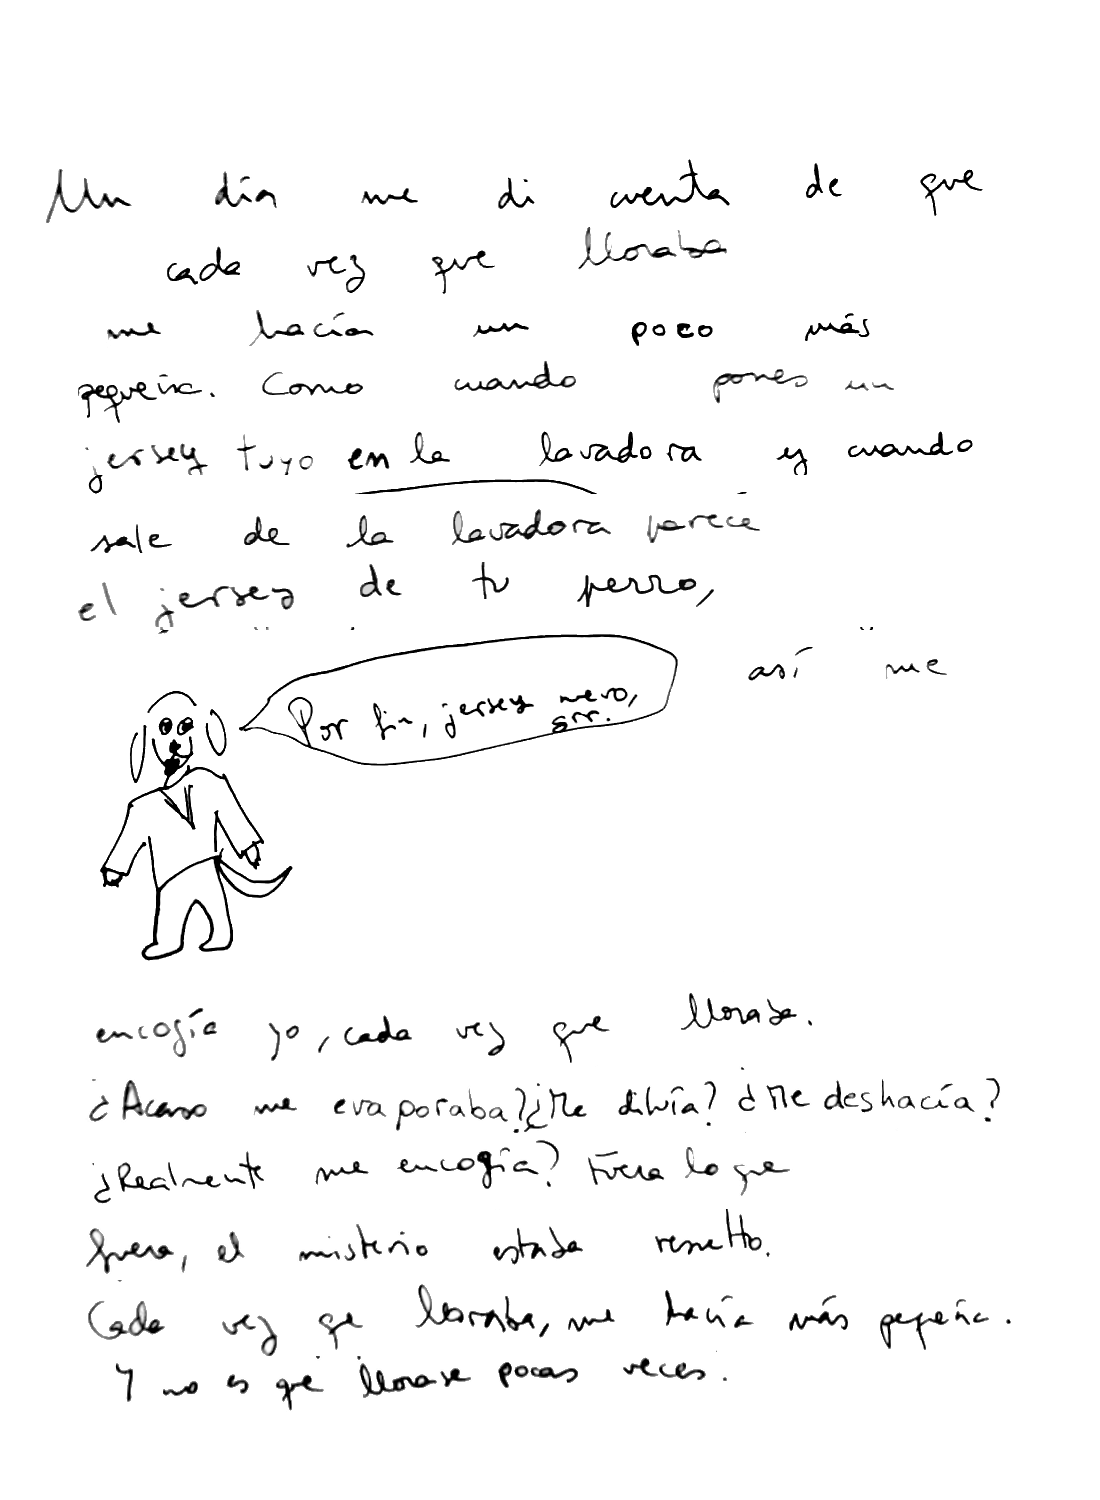 Un día me di cuenta de que
cada vez que lloraba
me hacía un poco más
pequeña. Como cuando pones un
jersey tuyo en la lavadora y cuando
sale de la lavadora parece
el jersey de tu perro,
así me
Por fin, jersey nuevo,
grr.
encogía yo, cada vez que lloraba.
¿Acaso me evaporaba? ¿Me diluía? ¿Me deshacía?
¿Realmente me encogía? Fuera lo que
fuera, el misterio estaba resuelto.
Cada vez que lloraba, me hacía más pequeña.
Y no es que llorase pocas veces.